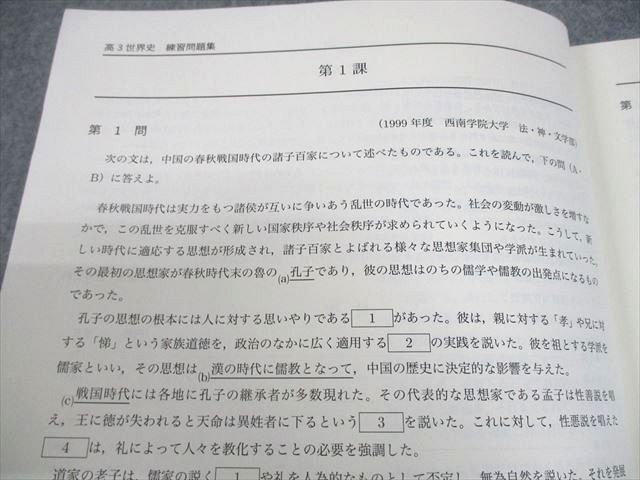 高3世界史　練習問題集
第1課
第　1　問
(1999年度　西南学院大学　法・神・文学部)
次の文は，中国の春秋戦国時代の諸子百家について述べたものである。これを読んで，下の問（A・
B）に答えよ。
春秋戦国時代は実力をもつ諸侯が互いに争いあう乱世の時代であった。社会の変動が激しさを増すな
かで，この乱世を克服すべく新しい国家秩序や社会秩序が求められていくようになった。こうして，新
しい時代に適応する思想が形成され，諸子百家とよばれる様々な思想家集団や学派が生まれていった。
その最初の思想家が春秋時代末の魯の(a)孔子であり，彼の思想はのちの儒学や儒教の出発点になるもの
であった。
孔子の思想の根本には人に対する思いやりである 1 があった。彼は，親に対する「孝」や兄に対
する「悌」という家族道徳を，政治のなかに広く適用する 2 の実践を説いた。彼を祖とする学派を
儒家といい，その思想は(b)漢の時代に儒教となって，中国の歴史に決定的な影響を与えた。
(c)戦国時代には各地に孔子の継承者が多数現れた。その代表的な思想家である孟子は性善説を唱
え，王に徳が失われると天命は異姓者に下るという 3 を説いた。これに対して，性悪説を唱えた
4 は，礼によって人々を教化することの必要を強調した。
道家の老子は，儒家の説く 1 や礼を人為的なものとして否定し，無為自然を説いた。それを発展
第